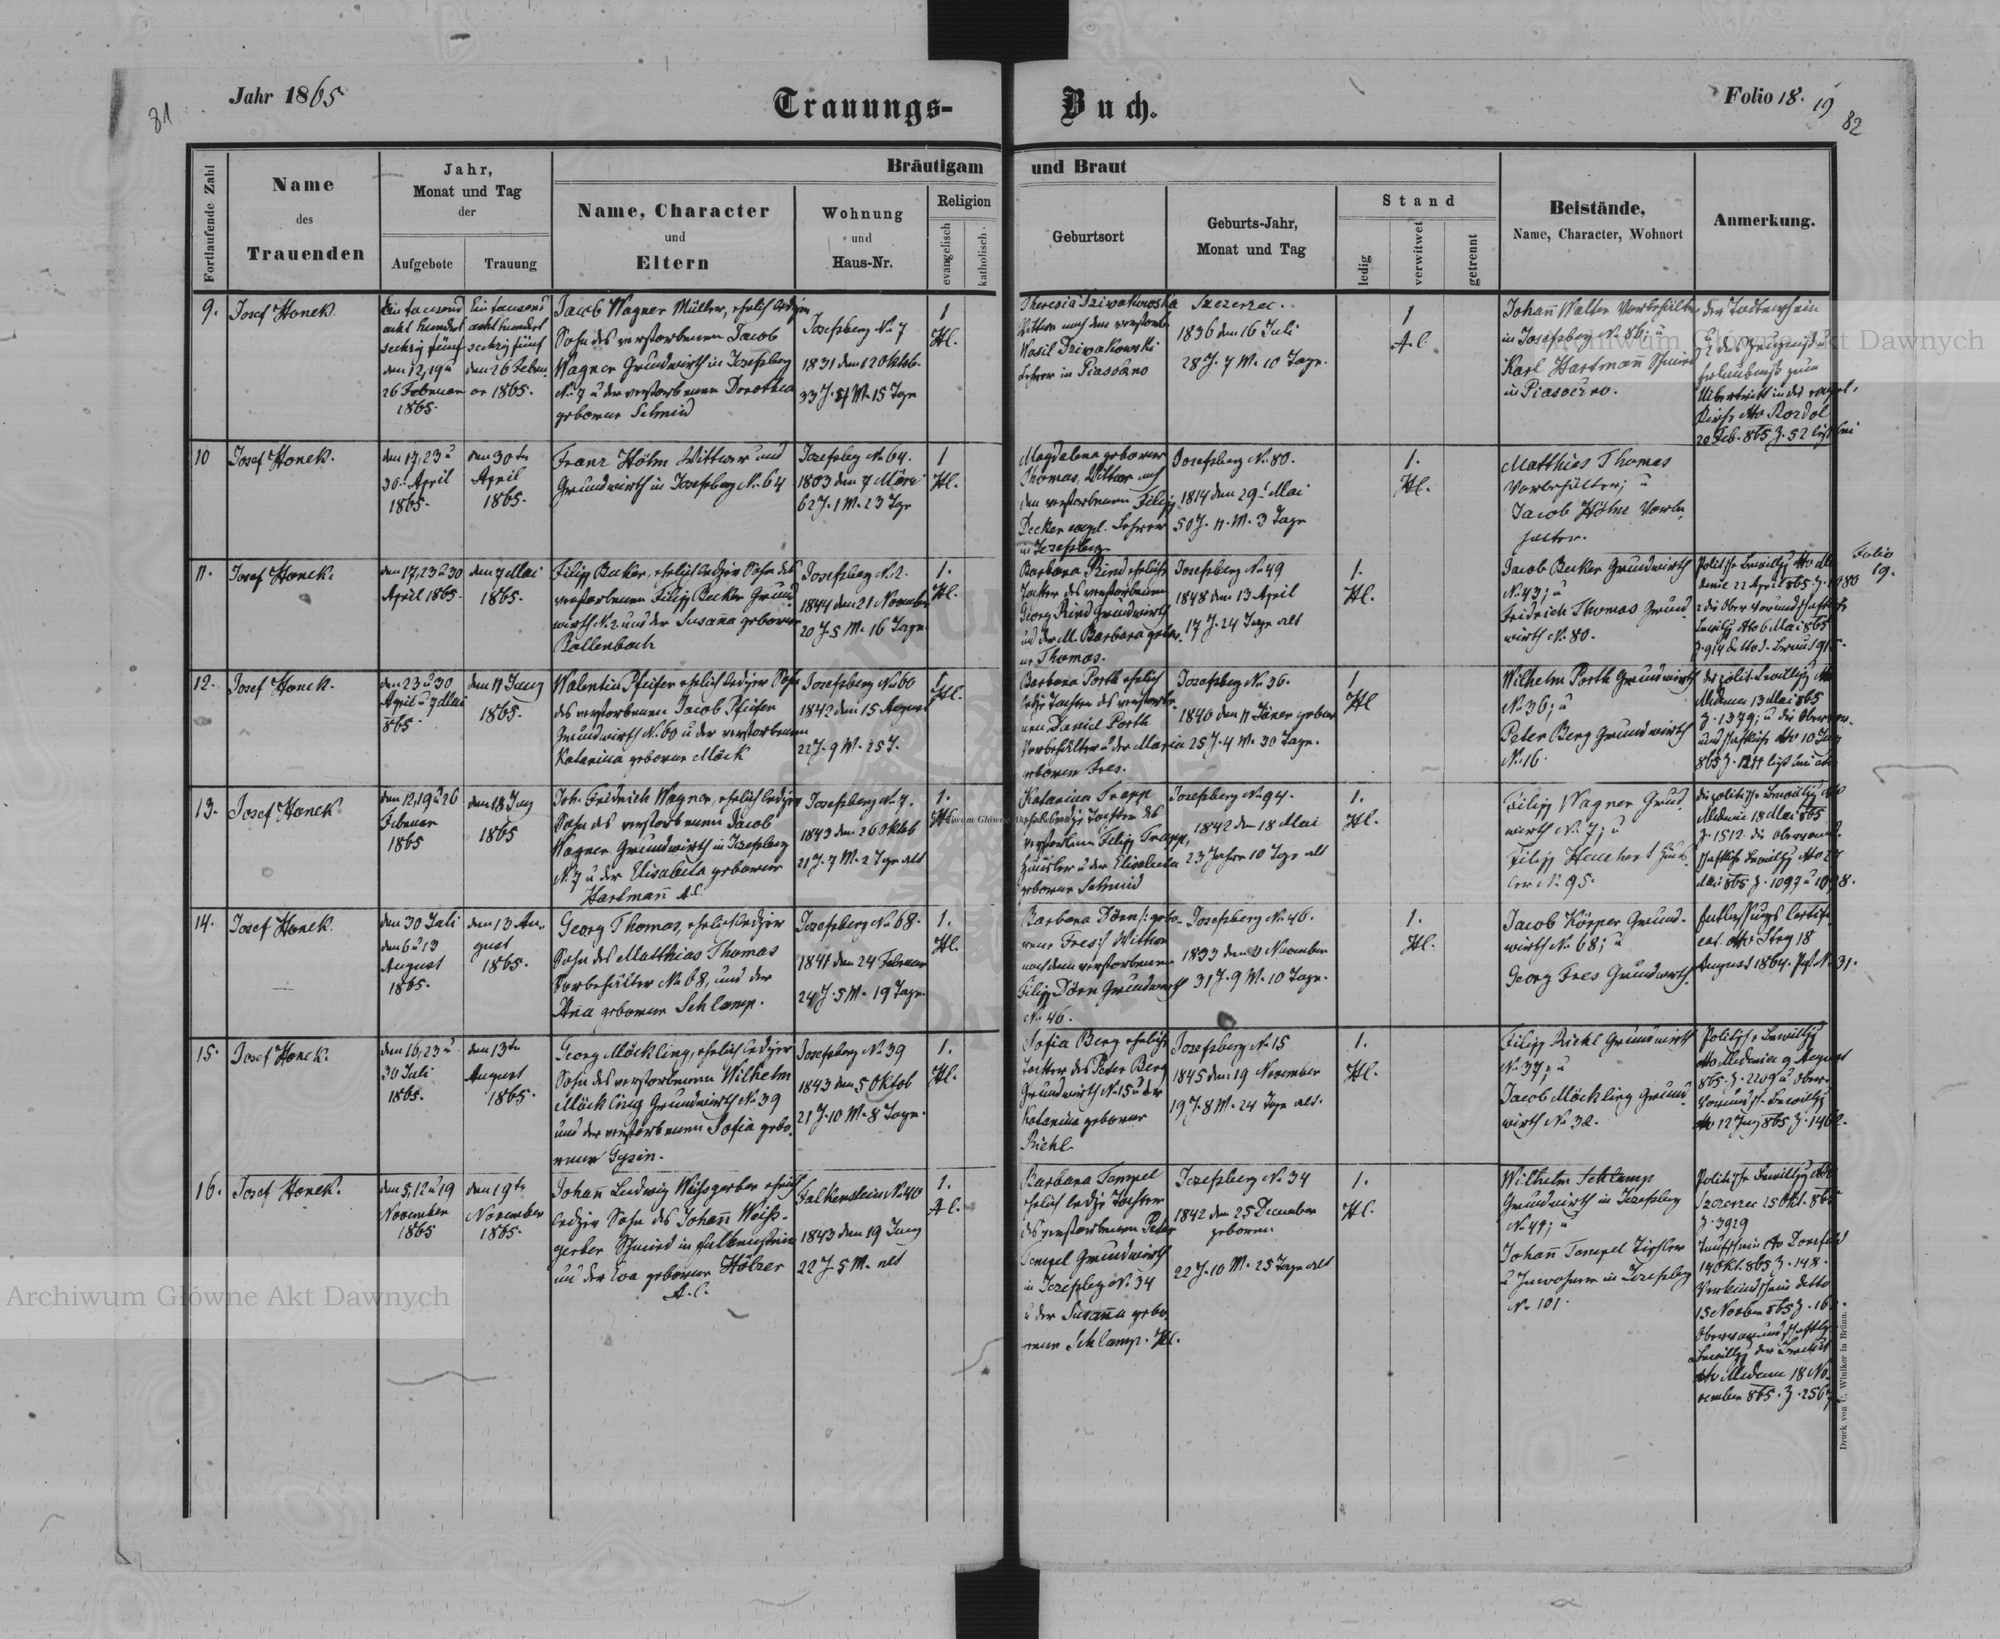 81
Jahr 1865
Trauungs-Buch.
Folio 18. 19
82
Fortlaufende Zahl
Name
des
Trauenden
Jahr,
Monat und Tag
der
Aufgebote
Trauung
Bräutigam und Braut
Name, Character
und
Eltern
Wohnung
und
Haus-Nr.
Religion
evangelisch
katholisch.
Geburtsort
Geburts-Jahr,
Monat und Tag
Stand
ledig
verwitwet
getrennt
Beistände,
Name, Character, Wohnort
Anmerkung.
9.
Josef Honek.
Ein tausend
acht hundert
sechzig fünf
den 12, 19 u
26 Februar
1865.
Ein tausend
acht hundert
sechzig fünf
den 26 Febru
ar 1865.
Jacob Wagner Müller, ehelich lediger
Sohn des verstorbenen Jacob
Wagner Grundwirth in Josefsberg
No 7 u der verstorbenen Dorothea
geborene Schmid
Josefsberg No 7
1831 den 12 Oktob.
33 J. 4 M. 15 Tage
1
Hl.
Theresia Dziwakowska
Wittwe nach dem verstorb.
Wasil Dziwakowski
Lehrer in Piasoczno
Szczerzec.
1836 den 16 Juli
28 J. 7 M. 10 Tage.
1
A. C.
Johann Walter Vorbehälter
in Josefsberg No 86; u
Karl Hartmann Schmied
in Piasoczno.
der Todtenschein
Erlaubniß zum
Uibertritt in die evangel.
Kirche dto Rozdol
20 Feb. 865 Z. 52 liegt bei
10
Josef Honek.
den 17, 23 u
30. April
1865.
den 30te
April
1865.
Franz Höhn Wittwer und
Grundwirth in Josefsberg No 64
Josefsberg No 64.
1803 den 7 März
62 J. 1 M. 23 Tage
1
Hl.
Magdalena geborene
Thomas, Wittwe nach
den verstorbenen Filipp
Decker evgel. Lehrer
in Josefsberg
Josefsberg No 80.
1814 den 29t Mai
50 J. 11 M. 3 Tage
1.
Hl.
Matthias Thomas
Vorbehälter; u
Jacob Höhn Vorbe,
hälter.
11.
Josef Honek.
den 17, 23 u 30
April 1865.
den 7 Mai
1865.
Filipp Becker, ehelich lediger Sohn des
verstorbenen Filipp Becker Grund,
wirth No 2. und der Susanna geborene
Rollenbach
Josefsberg No 2.
1844 den 21 November
20 J. 5 M. 16 Tage.
1.
Hl.
Barbara Rind eheliche
Tochter des verstorbenen
Georg Rind Grundwirth
und der M. Barbara gebor.
ne Thomas.
Josefsberg No 49
1848 den 13 April
17 J. 24 Tage alt
1.
Hl.
Jacob Becker Grundwirth
No 43; u
Fridrich Thomas Grund,
wirth No 80.
Folio
19.
12.
Josef Honek.
den 23 u 30
April u 7 Mai
865
den 11 Juny
1865.
Walentin Pfeifer ehelich lediger Sohn
des verstorbenen Jacob Pfeifer
Grundwirth No 60 u der verstorbenen
Katarina geborene Möck
Josefsberg No 60
1842 den 15 August
22 J. 9 M. 25 T.
1.
Hl.
Barbara Porth ehelich
ledige Tochter des verstorbe
nen Daniel Porth
Vorbehälter u der Maria
geborene Fres.
Josefsberg No 36.
1840 den 11 Jäner gebor.
25 J. 4 M. 30 Tage.
1.
Hl
Wilhelm Porth Grundwirth
No 36; u
Peter Berg Grundwirth
No 16.
13.
Josef Honek
den 12, 19 u 26
Februar
1865
den 18 Juny
1865
Joh. Fridrich Wagner, ehelich lediger
Sohn des verstorbenen Jacob
Wagner Grundwirth in Josefsberg
No 7 u der Elisabeta geborene
Hartmann A. C.
Josefsberg No 7.
1843 den 26 Oktob
21 J. 7 M. 2 Tge alt
1.
Hl.
Katarina Trapp
ehelich ledige Tochter des
verstorbenen Filipp Trapp,
Häusler u der Elisabeta
geborene Schmid
Josefsberg No 94.
1842 den 18 Mai
23 Jahre 10 Tage alt
1.
Hl.
Filipp Wagner Grund,
wirth No 7; u
Filipp Heuchert Häus,
ler No 95.
14.
Josef Honek.
den 30 Juli
den 6 u 13
August
1865.
den 13 Au,,
gust
1865.
Georg Thomas, ehelich lediger
Sohn des Matthias Thomas
Vorbehälter No 68, und der
Anna geborene Schlamp.
Josefsberg No 68.
1841 den 24 Februar
24 J. 5 M. 19 Tage.
1.
Hl.
Barbara Dörn /: gebo,
rene Fres:/ Wittwe
nach dem verstorbenen
Filipp Dörn Grundwirth
No 46.
Josefsberg No 46.
1833 den 3 November
31 J. 9 M. 10 Tage.
1.
Hl.
Jacob Körper Grund,
wirth No 68; u
Georg Fres Grundwirth.
Entlassungs Certifi
cat dto Stry 18
August 1864. No 31.
15.
Josef Honek.
den 16, 23 u
30 Juli
1865.
den 13te
August
1865.
Georg Möckling, ehelich lediger
Sohn des verstorbenen Wilhelm
Möckling Grundwirth No 39
und der verstorbenen Sofia gebo,
rene Gysin.
Josefsberg No 39
1843 den 5 Oktob
21 J. 10 M. 8 Tage.
1.
Hl.
Sofia Berg eheliche
Tochter des Peter Berg
Grundwirth No 15 u der
Katarina geborene
Riehl.
Josefsberg No 15
1845 den 19 November
19 J. 8 M. 24 Tage alt.
1.
Hl.
Filipp Riehl Grundwirth
No 37; u
Jacob Möckling Grund,
wirth No 32.
Politische Bewilligg
dto Medenice 9 August
865. Z. 2209 u Ober-
Vormundsch. Bewilligg
dto 12 Juny 865 Z. 1462.
16.
Josef Honek.
den 5, 12 u 19
November
1865
den 19te
November
1865.
Johann Ludwig Weißgerber ehelich
lediger Sohn des Johann Weiß-
gerber Schmied in Falkenstein
und der Eva geborene Hölzer
A. C.
Falkenstein No 40
1843 den 19 Juny
22 J. 5 M. alt
1.
A. C.
Barbara Tempel
ehelich ledige Tochter
des verstorbenen Peter
Tempel Grundwirth
in Josefsberg No 34
u der Susanna gebo,
rene Schlamp. Hl.
Josefsberg No 34
1842 den 25 December
geboren
22 J. 10 M. 25 Tage alt
1.
Hl.
Wilhelm Schlamp
Grundwirth in Josefsberg
No 41; u
Johann Tempel Tischler
u Inwohner in Josefsberg
No 101.
Politische Bewilligg dto
Szczerzec 25 Okt. 865
Z. 3929
Taufschein dto Dornfeld
14 Okt. 865 Z. 148.
Verkündschein detto
15 Novber 865 Z. 16
Obervormundschaftliche
Bewilligg der Braut
dto Medenice 18 No,
vember 865. Z. 256
Druck von C. Winiker in Brünn.
Archiwum Główne Akt Dawnych
Archiwum Główne Akt Dawnych